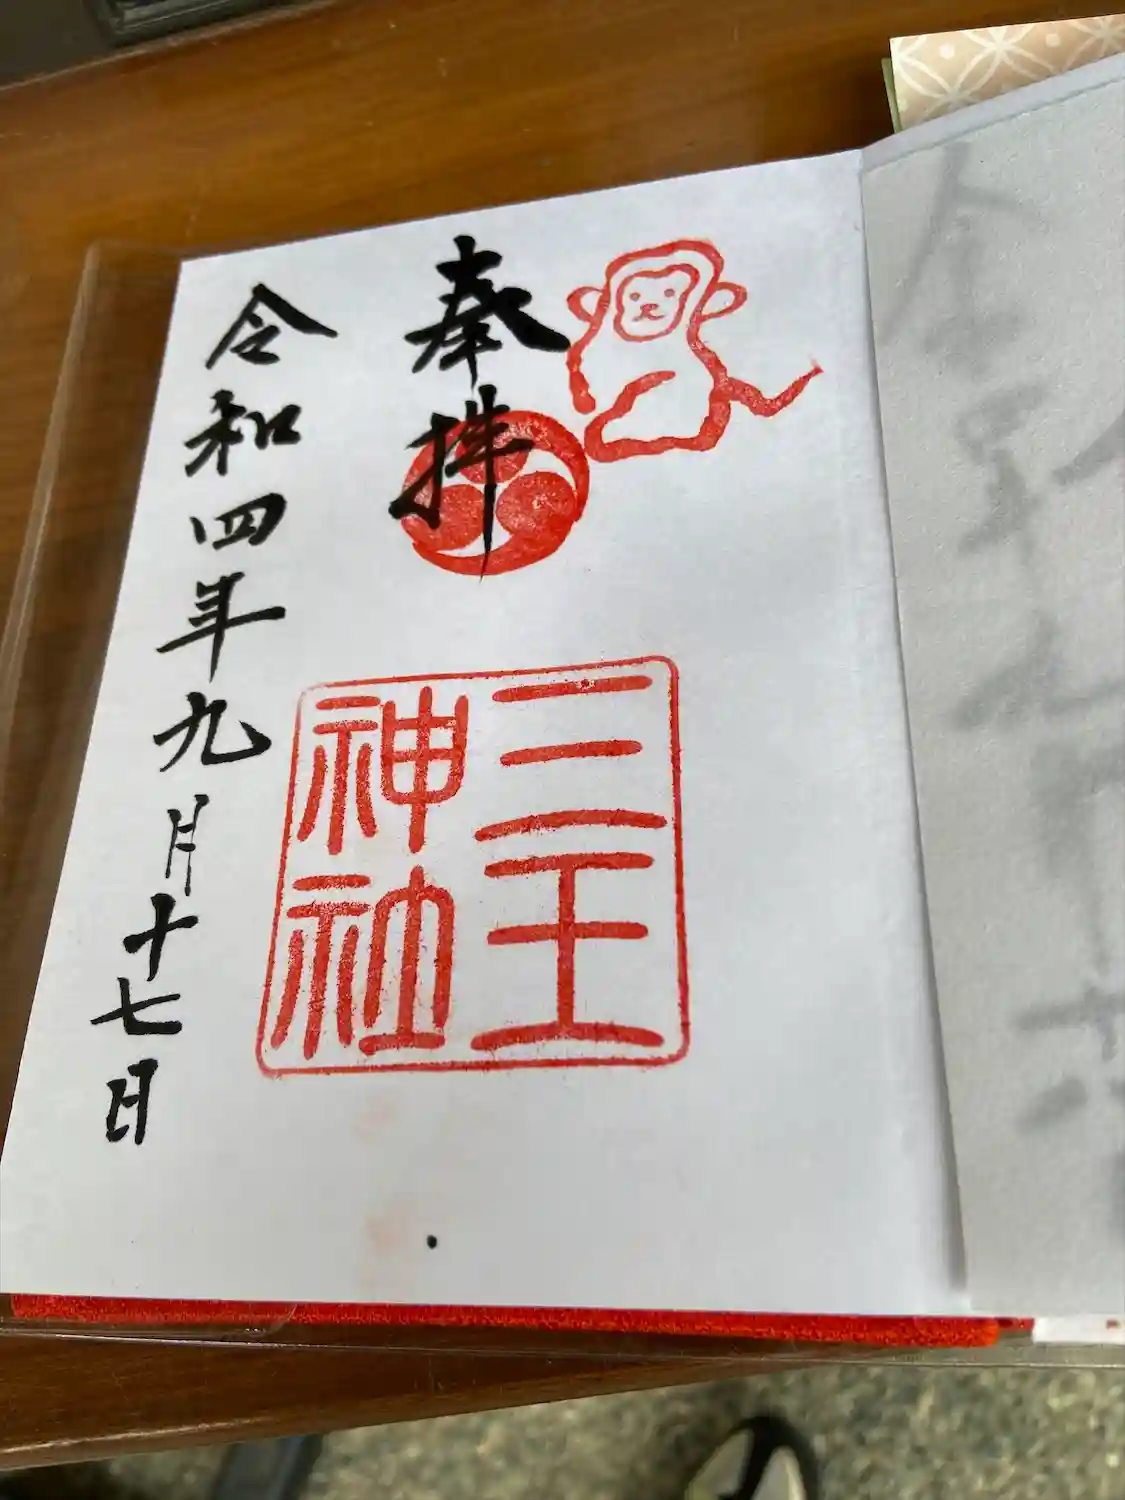 奉拝
三王
神社
令和四年九月十七日